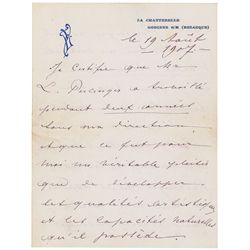 LA CHANTERELLE
GODINNE S/M. (BELGIQUE)
le 19 Août
1907
Je certifie que Mr
L. a travaillé
pendant deux années
sous ma direction,
et que ce fut pour
moi un véritable plaisir
que de développer
les qualités artistiques
et les capacités naturelles
qu'il possède